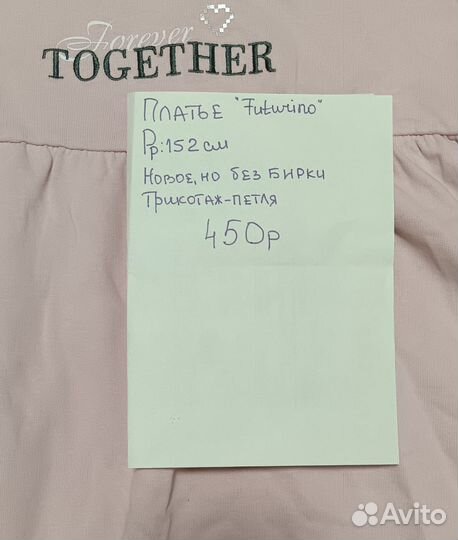 Forever
TOGETHER
Платье "Futurino"
Рр: 152 см
Новое, но без бирки
Трикотаж-петля
450р
Avito